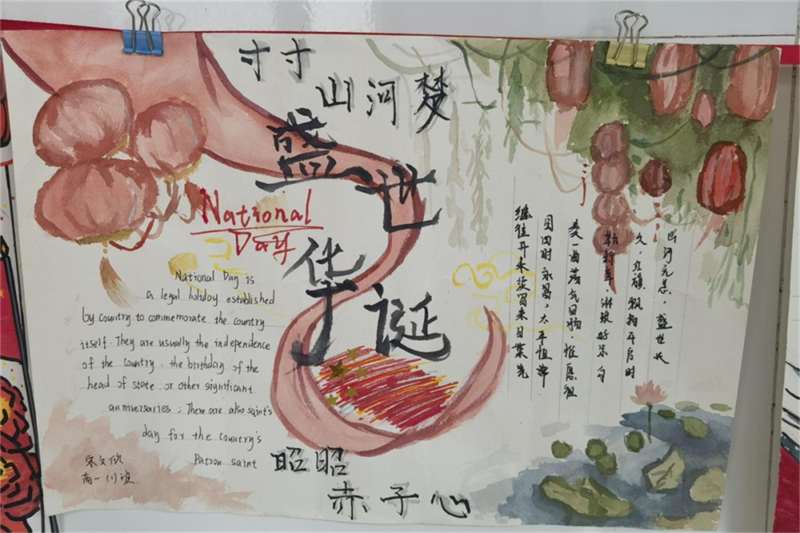 寸寸
山河梦
盛世
华诞
National
Day
National Day is
a legal holiday established
by country to commemorate the country
itself. They are usually the independence
of the country, the birthday of the
head of state or other significant
anniversaries; There are also saint's
day for the country's
Patron saint
高一(1)班
山河无恙,盛世长
久,红旗飘扬开启时
荡气回肠,惟愿祖
国四时永易,太平恒常
继往开来续写来日荣光
昭昭
赤子心